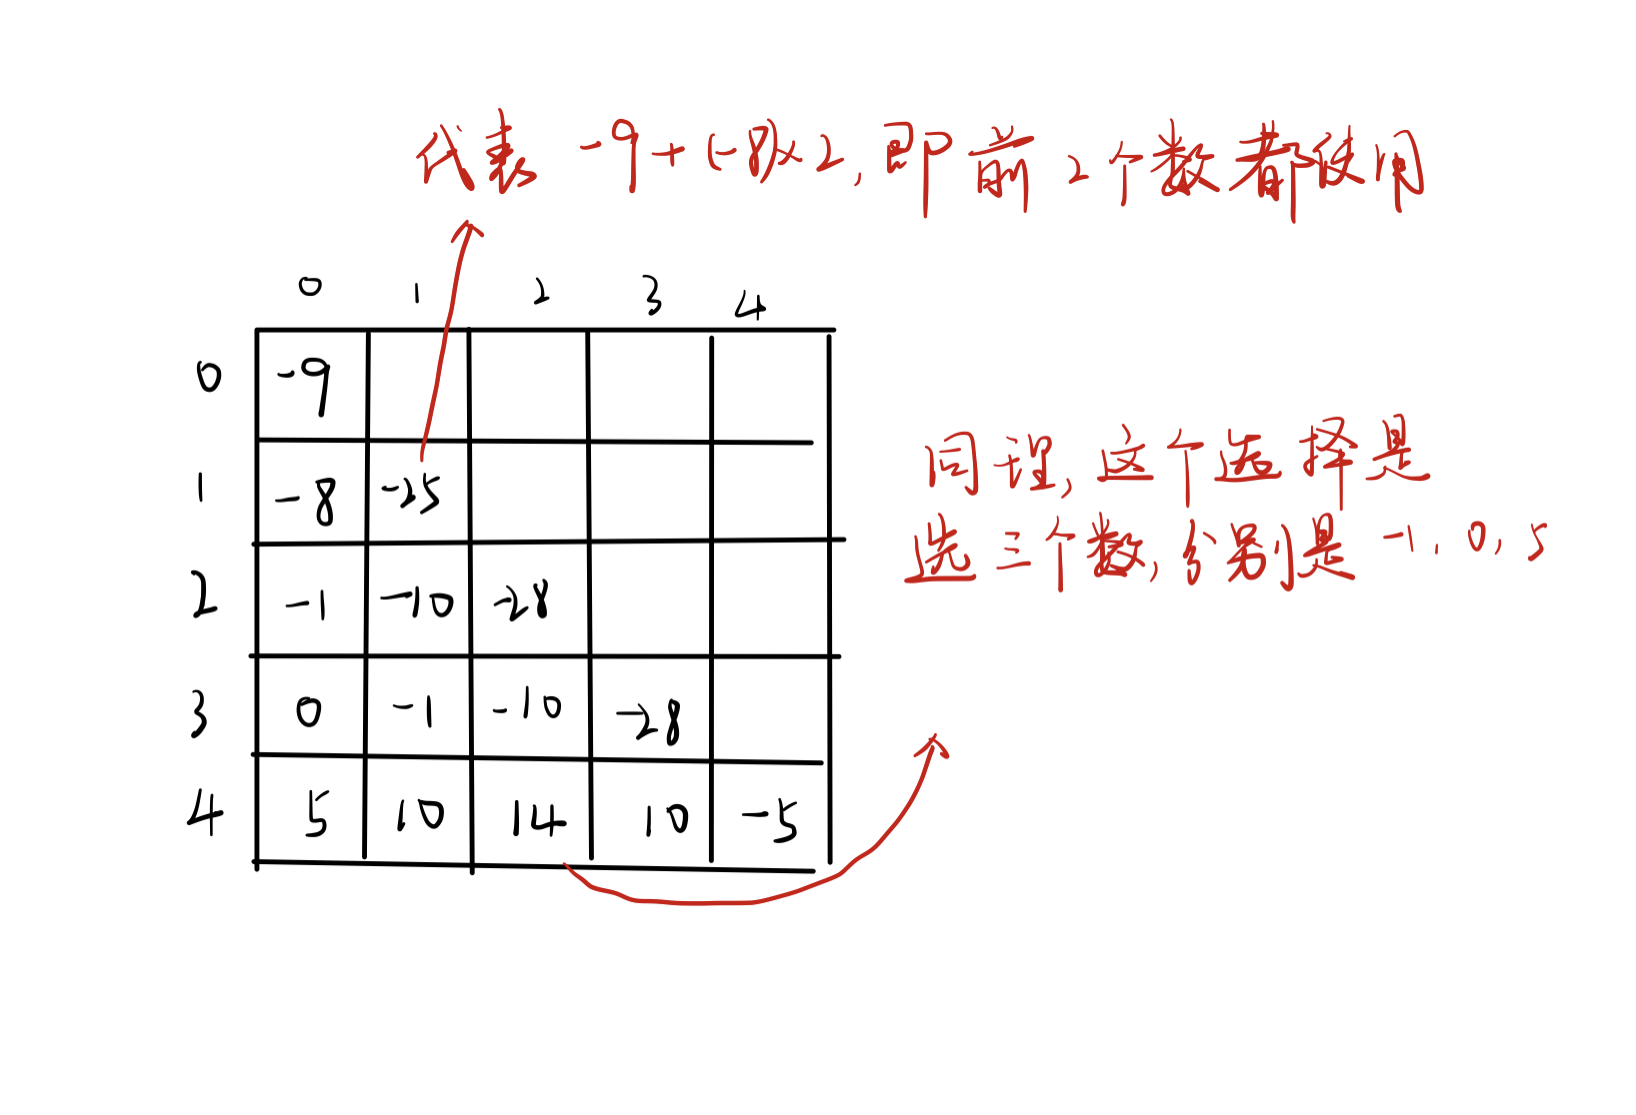 代表 -9+(-8)×2,即前2个数都使用
0 1 2 3 4
0 -9
1 -8 -25
2 -1 -10 -28
3 0 -1 -10 -28
4 5 10 14 10 -5
同理,这个选择是
选三个数,分别是 -1, 0, 5